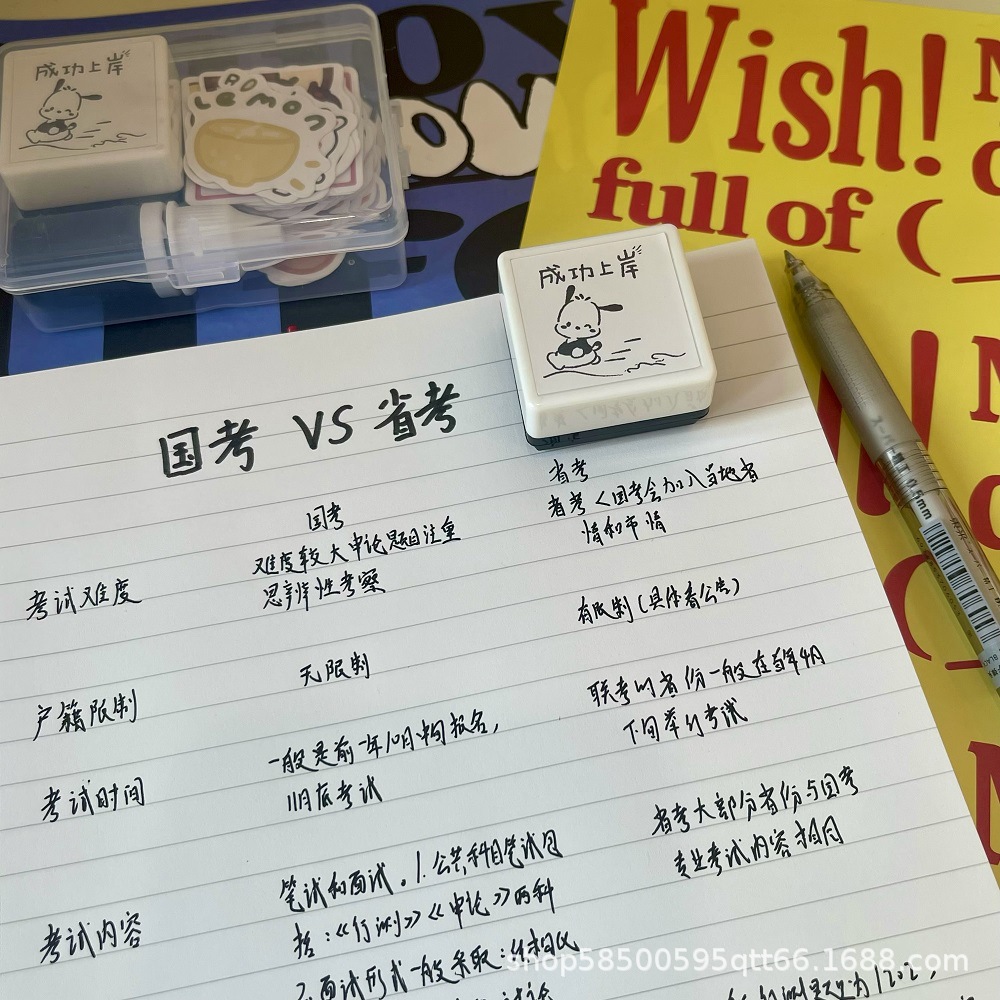 成功上岸
LEMO
Wish!
full of (
成功上岸
国考 VS 省考
国考
省考
难度较大申论题目注重
思辨性考察
省考<国考会加入当地省
情和市情
考试难度
户籍限制
无限制
有限制(具体看公告)
考试时间
一般是前一年10月中旬报名,
11月底考试
联考的省份一般在每年4月
下旬举行考试
考试内容
笔试和面试。1.公共科目笔试包
括:《行测》《申论》两科
2.面试形式一般采取:结构化
省考大部分省份与国考
专业考试内容相同
0.5mm
shop58500595qtt66.1688.com